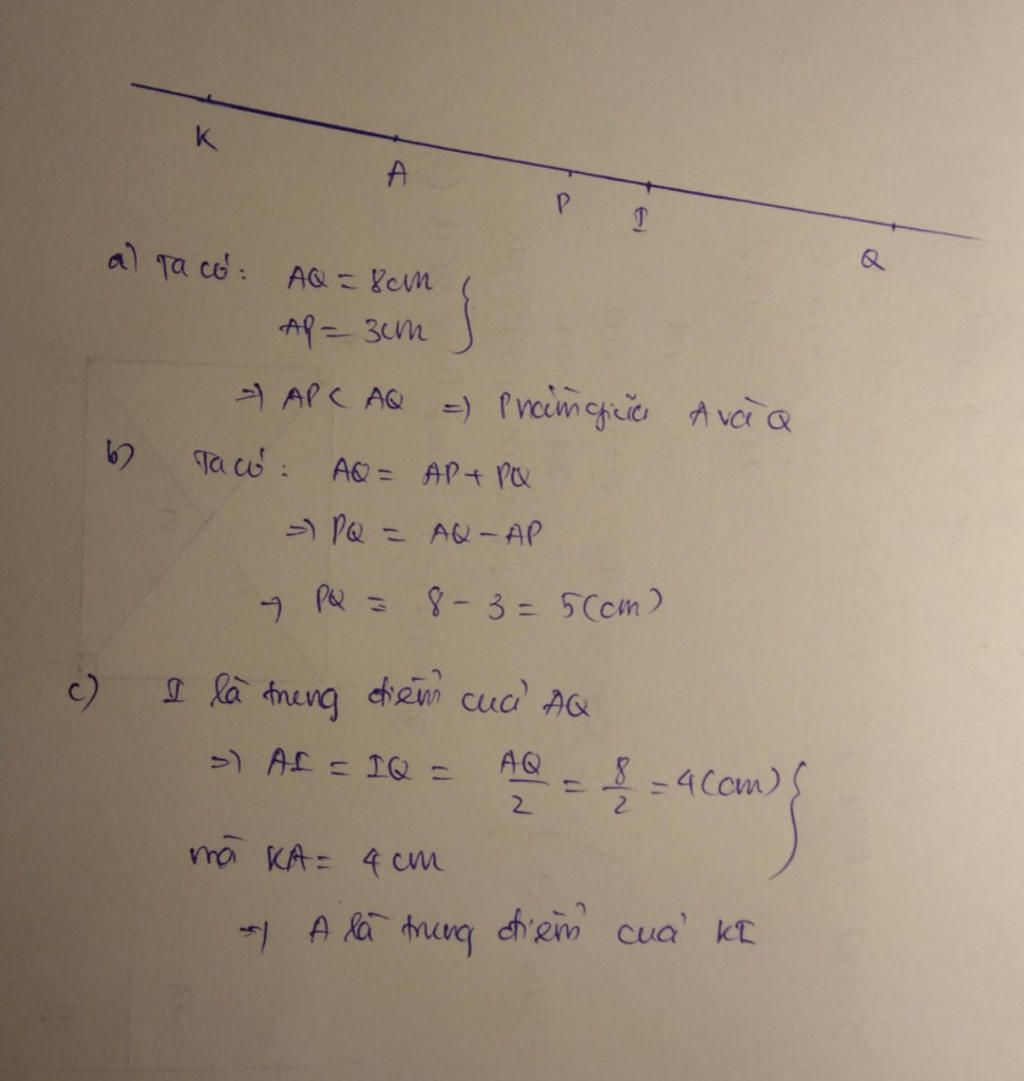 K
A
P
I
Q
a) Ta có: AQ = 8cm
AP = 3cm }
=> AP < AQ => P nằm giữa A và Q
b) Ta có: AQ = AP + PQ
=> PQ = AQ - AP
→ PQ = 8 - 3 = 5 (cm)
c) I là trung điểm của AQ
=> AI = IQ = AQ/2 = 8/2 = 4 (cm) }
mà KA = 4 cm
=> A là trung điểm của KI